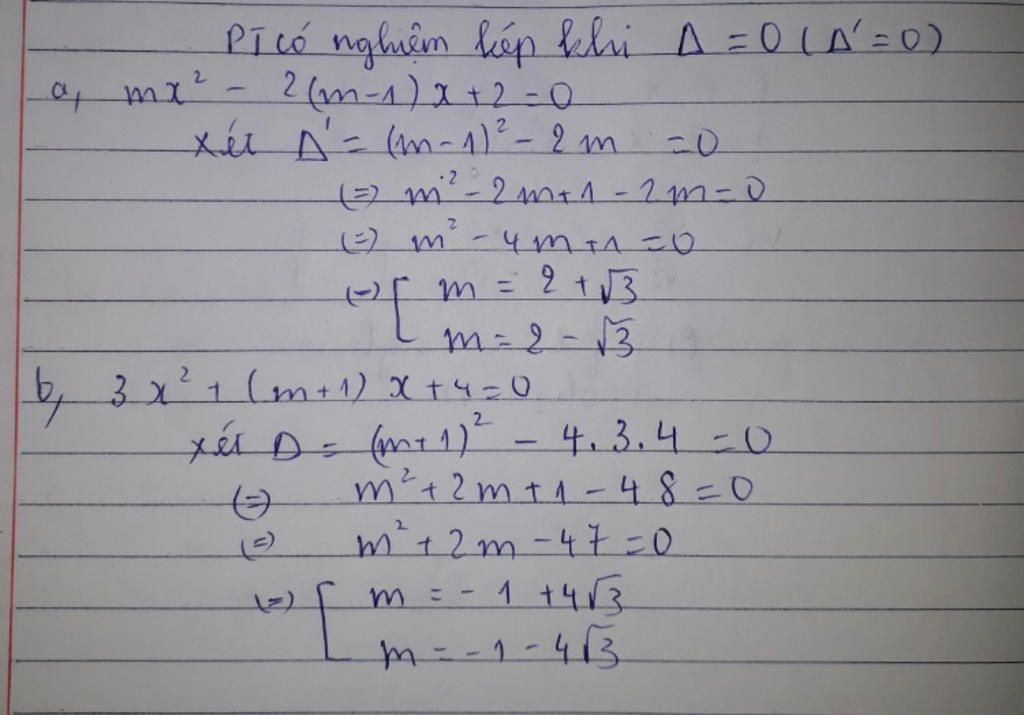 PT có nghiệm kép khi Δ = 0 (Δ' = 0)
a, mx² - 2(m-1)x + 2 = 0
xét Δ' = (m-1)² - 2m = 0
(=) m² - 2m + 1 - 2m = 0
(=) m² - 4m + 1 = 0
(=) [ m = 2 + √3
m = 2 - √3
b, 3x² + (m+1)x + 4 = 0
xét Δ = (m+1)² - 4.3.4 = 0
(=) m² + 2m + 1 - 48 = 0
(=) m² + 2m - 47 = 0
(=) [ m = -1 + 4√3
m = -1 - 4√3